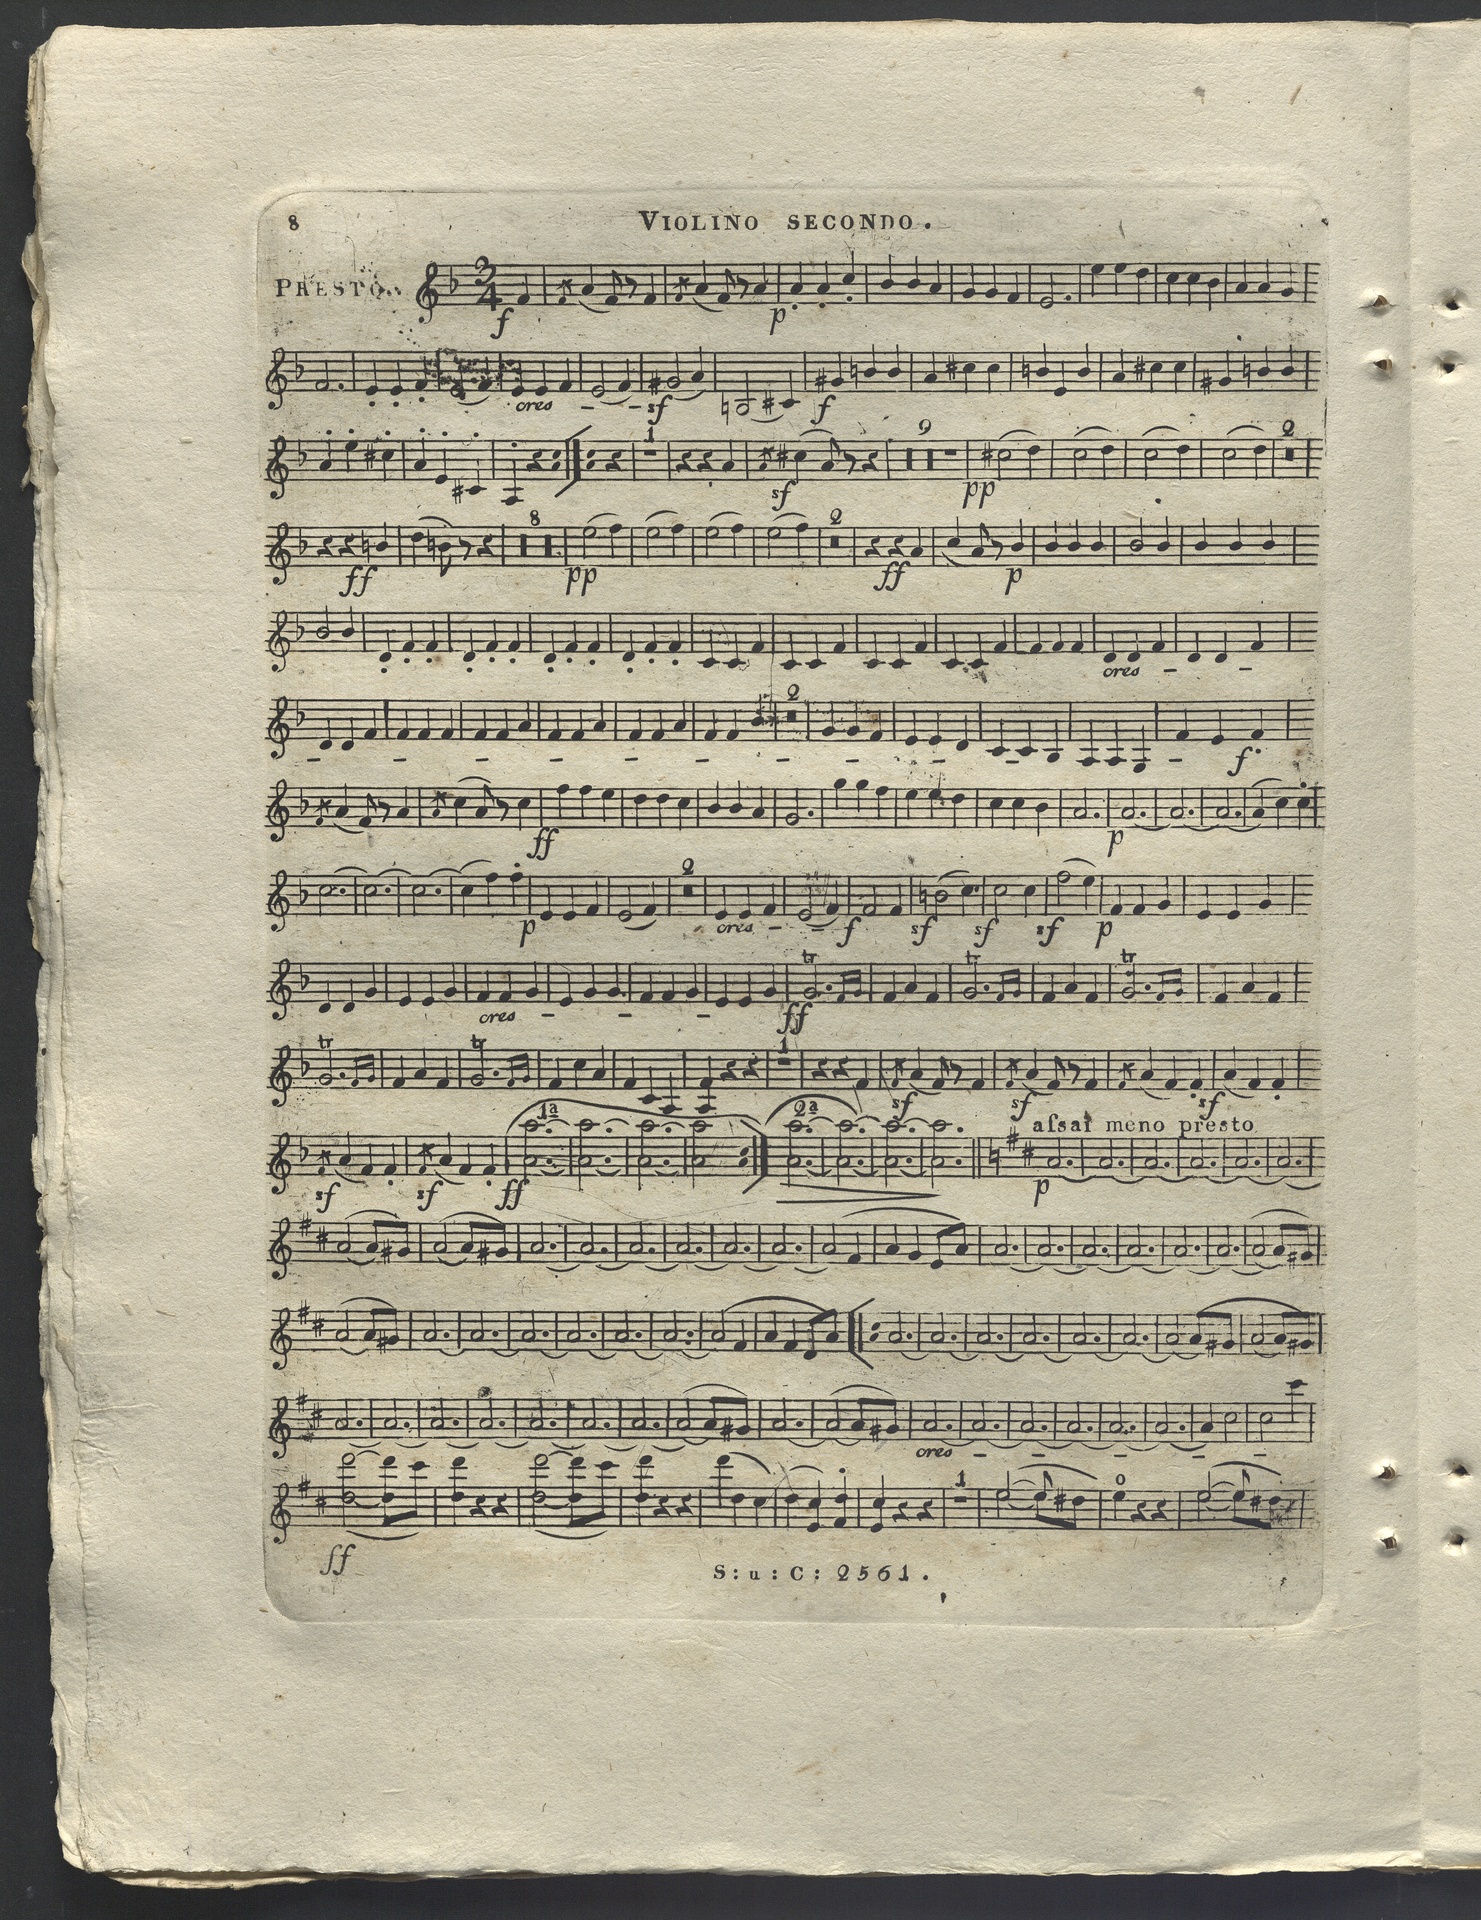 8
VIOLINO SECONDO.
PRESTO.
3 4
f p
cres sf f
1 9 2
sf pp
8 2
ff pp ff p
cres
2
f
ff p
2
p cres f sf sf sf p
tr tr tr
cres ff
tr tr 1
sf sf sf
1ª 2ª aſsai meno presto
sf sf ff p
cres
1 0
ff
S: u: C: 2561.